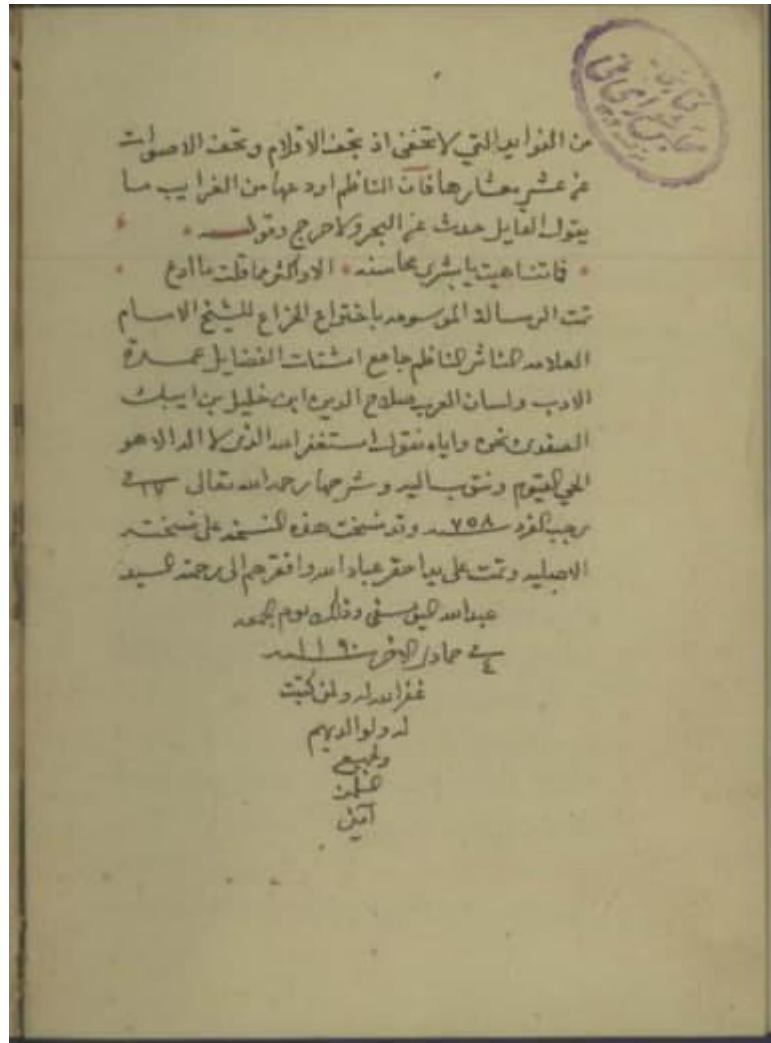 من الفوايد التي لا تخفى اذ تجف الاقلام وتحف الاصوات
عن عشر معشارها فان الناظم اودعها من الغرايب ما
يقول القايل حدث عن البحر ولا حرج وقوله
الا واكثر مما قلت ما ادع
تمت الرسالة الموسومه باختراع الخراع للشيخ الامام
العلامه الناثر الناظم جامع اشتات الفضايل عمدة
الادب ولسان العرب صلاح الدين ابن خليل بن ايبك
الصفدي نحن واياه نقول استغفر الله الذي لا اله الا هو
الحي القيوم ونتوب اليه وشرحها رحمه الله تعالى في ١٧
رجب الفرد سنه ٧٥٨ وقد نسخت هذه النسخه على نسخته
الاصليه وتمت على يد احقر عباد الله وافقرهم الى رحمته السيد
عبد الله اليوسفي وذلك يوم الجمعه
في ٤ جمادى الاخر سنه ١١٩٠
غفر الله له ولمن كتبت
له ولوالديهم
ولجميع
المسلمين
آمين